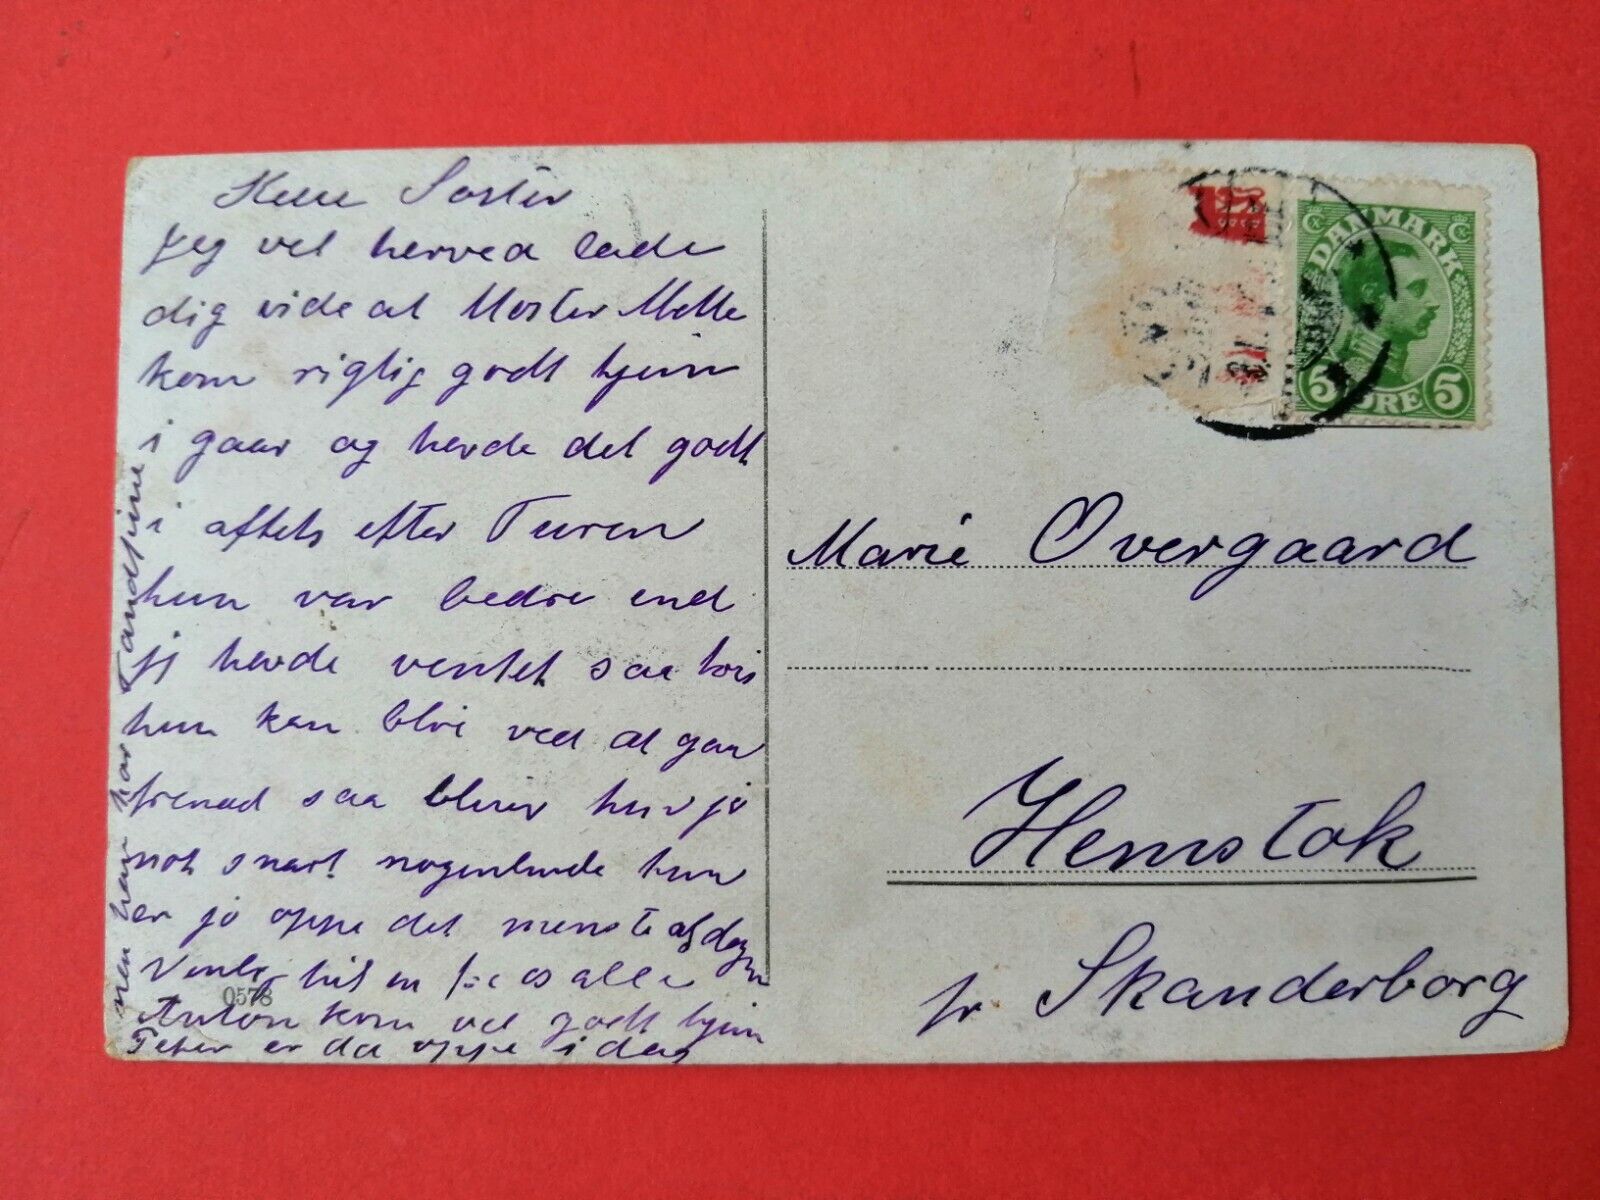 Kære Søster
Jeg vel herved lade
dig vide at Moster Mette
kom rigtig godt hjem
i gaar og havde det godt
i aftes efter Turen
hun var bedre end
jeg havde ventet saa hvis
hun kan blive ved at gaa
fremad saa bliver hun jo
nok snart nogenlunde hun
er jo oppe det meste af dagen
Venlig hilsen fra os alle
Anton kom vel godt hjem
Peter er da oppe i dag
men han har Tandpine
0578
DANMARK
5 ØRE 5
Marie Overgaard
Hemstok
pr Skanderborg